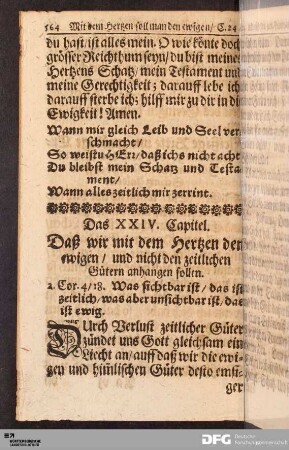 564 Mit dem Hertzen soll man den ewigen/ C. 24.
du hast/ ist alles mein. O wie könte doch
grösser Reichthum seyn/ du bist meines
Hertzens Schatz/ mein Testament und
meine Gerechtigkeit; darauff lebe ich
darauff sterbe ich; hilff mir zu dir in die
Ewigkeit! Amen.
Wann mir gleich Leib und Seel ver
schmacht/
So weistu HErr/ daß ichs nicht acht
Du bleibst mein Schatz und Testa-
ment/
Wann alles zeitlich mir zerrint.
Das XXIV. Capitel.
Daß wir mit dem Hertzen den
ewigen/ und nicht den zeitlichen
Gütern anhangen sollen.
2. Cor. 4/18. Was sichtbar ist/ das ist
zeitlich/ was aber unsichtbar ist/ das
ist ewig.
DUrch Verlust zeitlicher Güter
zündet uns Gott gleichsam ein
Liecht an/ auff daß wir die ewi-
gen und him̃lischen Güter desto emsi-
ger
DFG Deutsche
Forschungsgemeinschaft